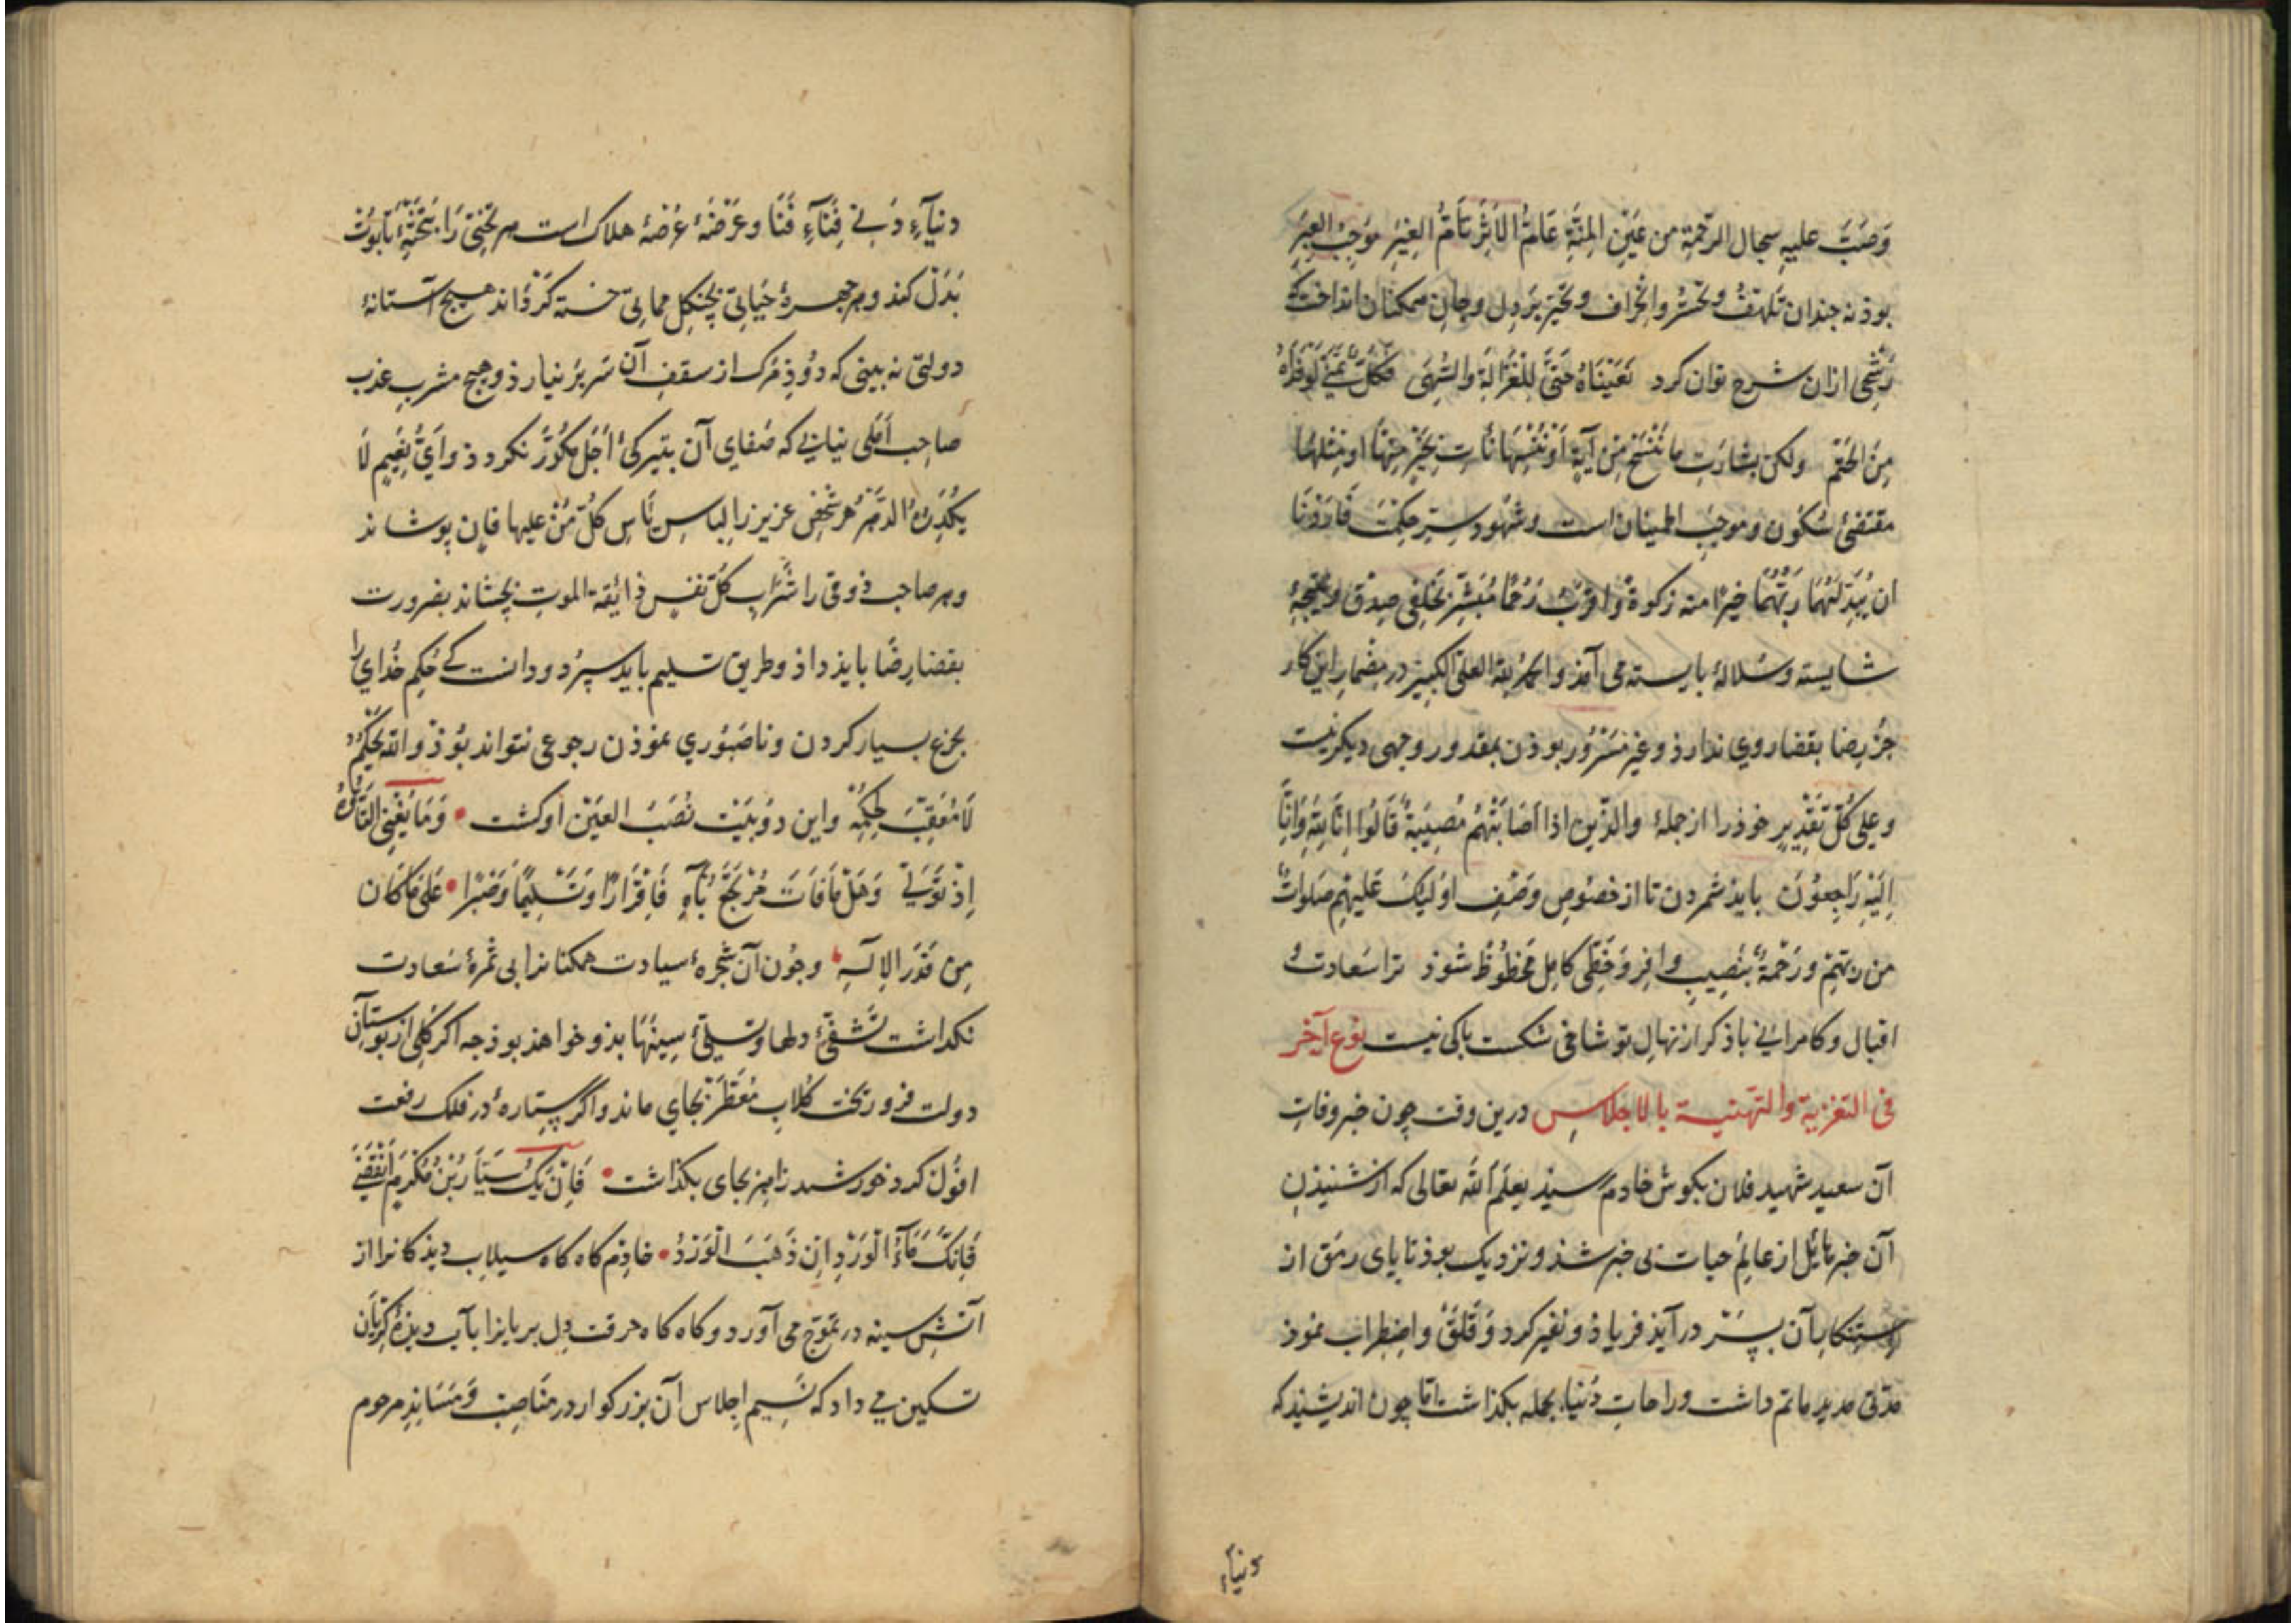 وَصَبَّ علیهِ سجال الرّحمةِ من عَیْنِ المِنَّةِ عَامُّ الأثَرِ تَامُّ الغِیَرِ مُوجِبُ العِبَرِ
بوذ نه جندان تَلَهُّفُ و تحَسُّر و انحراف و تحَیّر بَر دِل و جانِ همکنان انداخت که
رَشحی ازان شرح توان کرد نَعَیْنَاهُ حَتَّى لِلْغَزَالَةِ والسُّهَى فَكُلٌّ تَمَنَّى لَوْ فَدَاهُ
مِنَ الحَتْمِ ولکن بشارَتِ ما نَنْسَخْ مِنْ آیَةٍ اَوْ نُنْسِهَا نَأتِ بِخَیْرٍ مِنْهَا او مِثْلِهَا
مقتضیِٔ سُکُون و موجبِ اطمینان است و شهُود سِرّ حِکمَتِ فَارَدْنَا
ان یُبْدِلَهُمَا رَبُّهُمَا خَیْرًا منه زکوةً وَاقرَبَ رُحْمًا مُبَشّرِ بخَلَفِی صِدْق و نتیجهٔ
شایسته و سُلالهٔ بایسته می آمذ و الحمد لله العلیّ الکبیر در مِضمارِ این کار
جزْ رِضا بقضا روی نداردْ و غیر مَسْرُور بوذن بمقدور وجهی دیکر نیست
و علی کُلّ تَقْدِیرٍ خوذ را از جملهٔ والّذین اذا اصَابَتْهُمْ مُصِیبَةٌ قَالُوا اِنَّا لِلّهِ وَاِنَّا
اِلَیْهِ رَاجِعُوْنَ بایذ شمردن تا از خصُوصِ وَصْفِ اوُلئِکَ عَلَیهِمْ صَلَوَاتٌ
من رَبِّهِمْ وَرَحْمَةٌ بنَصِیبِ وافِر وَ حَظّی کامِل مَحْظُوظ شوذ ترا سَعادت و
اقبال و کامرانی باذ کر از نهالِ تو شاخی شکست باکی نیست نوع آخر
فی التعْزیة والتهنیة بالاجلاسِ درین وقت چون خبر وفاتِ
آن سعید شهید فلان بکوش خادم رسیذ یعلم اللهُ تعالی که از شنیذنِ
آن خبر هائل از عالَمِ حیات بی خبر شذ و نزدیک بوذ تا پای رمَق از
آن بسْتَر درآیذ فریاذ و نفیر کرد وَ قَلَقْ و اضطراب نموذ
مدّتی مدید ماتم داشت و راحاتِ دُنیا بجمله بکذاشت امّا چون اندیشیذ که
دنیاء
دنیآءِ دَنی فِنَآءِ فَنَا و عَرْصَهٔ عُرْضهٔ هلاک است هر تخْتِی رَا بتَخْتَهٔ تابُوت
بَدَل کند و هر چهرهٔ حَیَاتی بچنکل مماتی خسته کَرْذاند هیچ آستانهٔ
دولتی نه بینی که دُوذِ مَرک از سقفِ آن سَر بَر نیارذ و هیج مشربِ عذب
صاحِب اَمَلی نیابی که صَفای آن بتیرکیٔ اَجَل مُکَدّر نکردذ و اَیُّ نعِیمٍ لَا
یُکَدِّرُهُ الدَّهْرُ هر شخصِ عزیز را لِباسِ یَاسِ کُلُّ مَنْ علیها فانٍ پوشاند
و هر صاحب ذوقی را شَرابِ کُلُّ نفسٍ ذائقة الموتِ بچشاند بضرورت
بقضا رِضَا بایذ داذ و طریقِ تسلیم باید سپرد و دانست که حُکمِ خُدای را
بجزع بسیار کردن و ناصَبُوری نموذن رجوعی نتواند بُوذ وَاللّهُ یَحْکُمُ
لَا مُعَقِّبَ لِحُکْمِهِ و این دو بیت نُصْبُ العَیْن او کشت • وَمَا یُغْنِی التَّأَوُّهُ
اِذْ تَوَلّی وَهَلْ مَا فَاتَ مُرْتَجَعٌ بِآهِ فَاِقْرَارًا وَتَسْلِیمًا وَصَبْرًا • عَلَى مَا کَان
مِن قَدَرِ الاِلَهِ • و چُون آن شَجَرهٔ سیادت همکنانرا بی ثمرهٔ سَعادت
نکذاشت تَشَفِّیٔ دلها و تسلیٔ سِینَهَا بذو خواهذ بوذ چه اکر کلی از بوستانِ
دولت فرو ریخت کُلابِ مُعَطَّرْ بجای ماند و اکر ستارهٔ در فلکِ رفعت
افُول کرد خورشید را هم بجای بکذاشت • فَاِنْ یَکُ سَیَّارُ بْنُ مُکْرَمِ انْقَضَى
فَاِنَّكَ مَآءُ الْوَرْدِ اِنْ ذَهَبَ الْوَرْدُ • خادِم کاه کاه سیلابِ دیذکانرا از
آتشِ سینه در تموّج می آورد و کاه کاه حرقتِ دِل بریانرا بآب دیذهٔ کریان
تسکین می داد که نَسِیم اجلاسِ آن بزرکوار در مَنَاصِب وَ مَسَانِدِ مرحوم